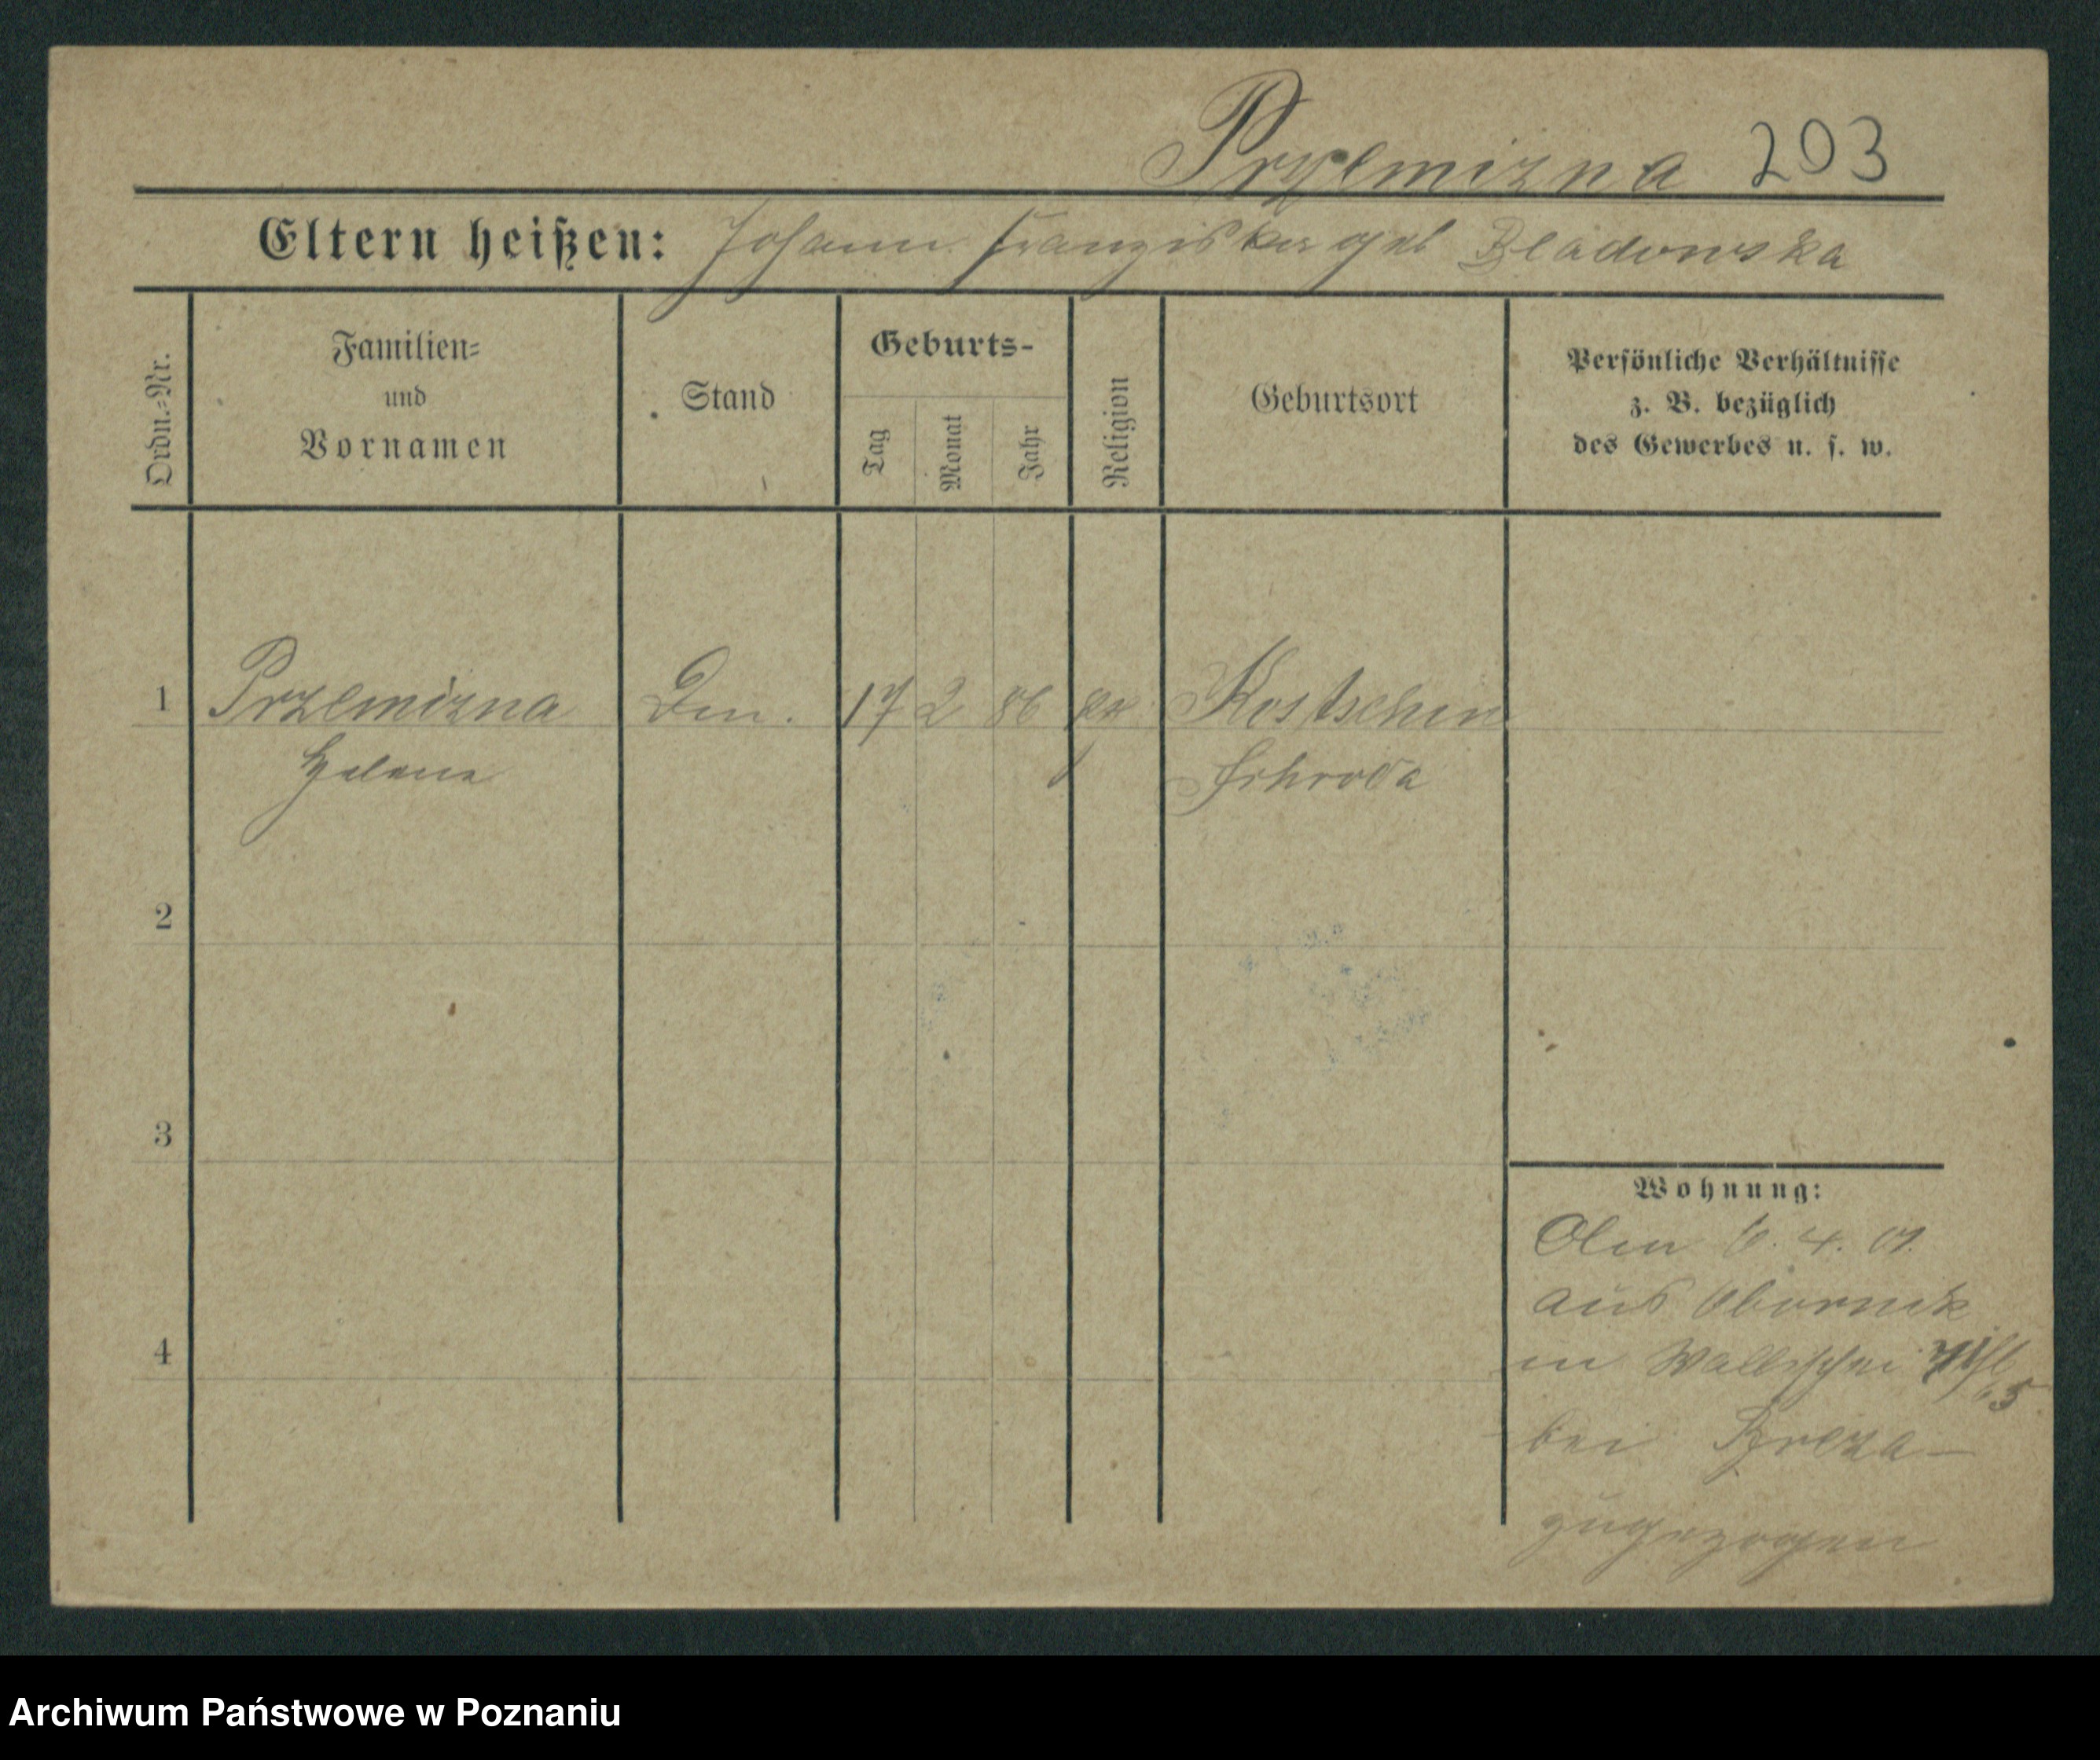 Przemizna 203
Eltern heißen: Johann Franziska geb Bladowska
Ordn.=Nr.
Familien=
und
Vornamen
Stand
Geburts-
Tag
Monat
Jahr
Religion
Geburtsort
Persönliche Verhältnisse
z. B. bezüglich
des Gewerbes u. s. w.
1 Przemizna 17 2 86 Kostschin
Helena Schroda
2
3
4
Wohnung:
4.
aus Obornik
in Wallischei
bei
zugezogen
Archiwum Państwowe w Poznaniu